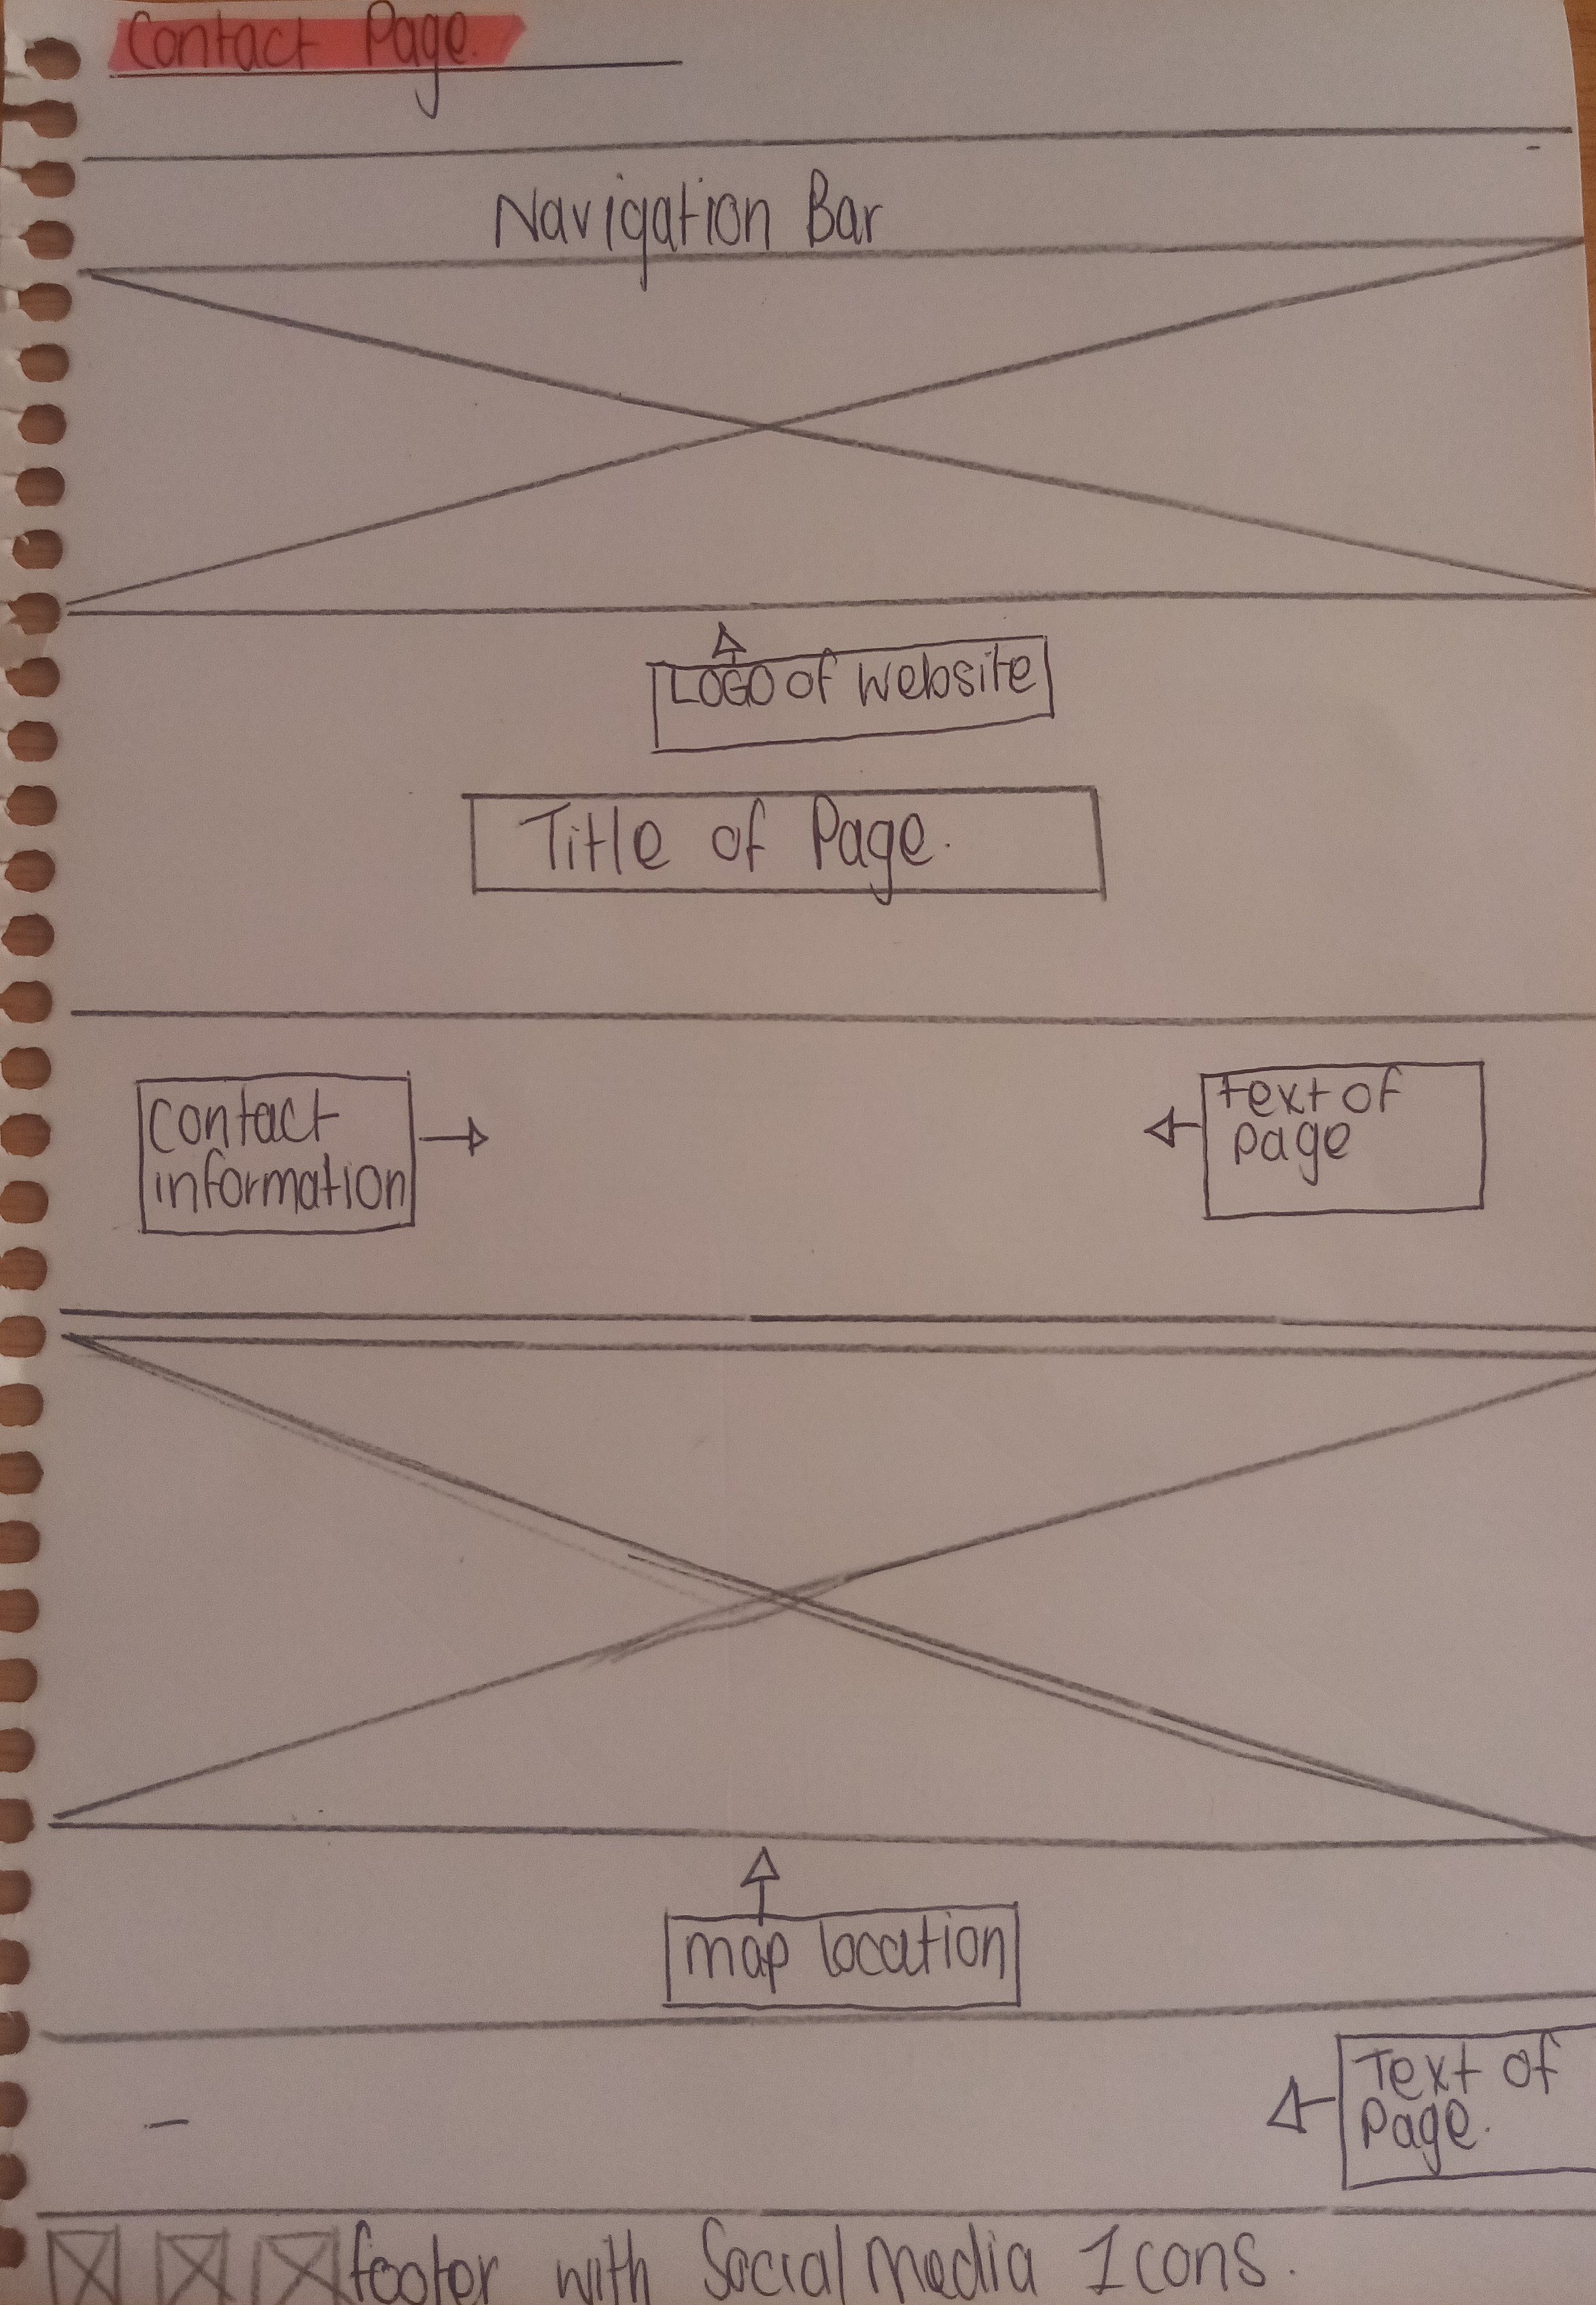 Contact Page.
Navigation Bar
LOGO of website
Title of Page.
Contact
information
text of
page
map location
Text of
Page.
footer with Social Media Icons.